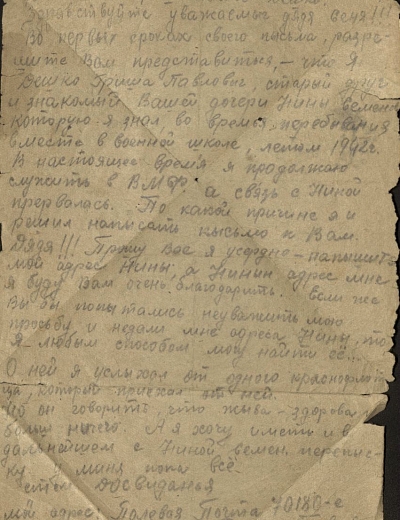 Здравствуйте уважаемый дядя Сеня!!!
Во первых строках своего письма, разре-
шите Вам представится, – что я
Гриша Павлович, старый друг
и знакомый Вашей дочери Нины
которую я знал во время пребывания
вместе в военной школе, летом 1942г.
В настоящее время я продолжаю
служить в ВМФ, а связь с Ниной
прервалась. По какой причине я и
решил написать письмо к Вам.
Дядя!!! Прошу Вас я усердно – напишите
мой адрес Нины, а Нинин адрес мне
я буду Вам очень благодарить. Если же
Вы бы попытались неуважить мою
просьбу и недали мне адреса Нины, то
я любым способом могу найти её...
О ней я услыхал от одного краснофлот
ца, который приехал от ней.
Но он говорить, что жива-здорова и
больш ничего. А я хочу иметь и в
дальнейшем с Ниной, переписку
ку. меня пока всё
Досвиданья
мой адрес: Полевая Почта 70180-е